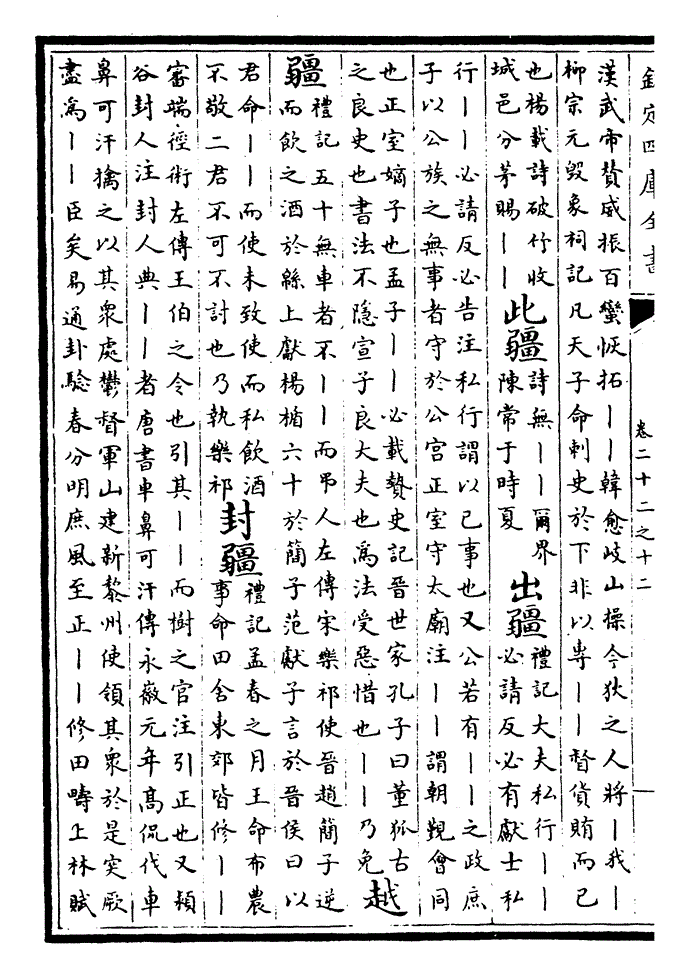 欽定四庫全書
卷二十二之十二
漢武帝贊威振百蠻恢拓丨丨韓愈岐山操今狄之人將丨我丨
柳宗元毀象祠記凡天子命刺史於下非以專丨丨督貨賄而已
也楊載詩破竹收
城邑分茅賜丨丨
此疆
詩無丨丨爾界
陳常于時夏
出疆
禮記大夫私行丨丨
必請反必有獻士私
行丨丨必請反必告注私行謂以己事也又公若有丨丨之政庶
子以公族之無事者守於公宮正室守太廟注丨丨謂朝覲會同
也正室嫡子也孟子丨丨必載贄史記晉世家孔子曰董狐古
之良史也書法不隱宣子良大夫也為法受惡惜也丨丨乃免
越
疆
禮記五十無車者不丨丨而弔人左傳宋樂祁使晉趙簡子逆
而飲之酒於綿上獻楊楯六十於簡子范獻子言於晉侯曰以
君命丨丨而使未致使而私飲酒
不敬二君不可不討也乃執樂祁
封疆
禮記孟春之月王命布農
事命田舍東郊皆修丨丨
審端徑術左傳王伯之令也引其丨丨而樹之官注引正也又潁
谷封人注封人典丨丨者唐書車鼻可汗傳永徽元年高侃伐車
鼻可汗擒之以其衆處鬱督軍山建新黎州使領其衆於是突厥
盡為丨丨臣矣易通卦驗春分明庶風至正丨丨修田疇上林賦